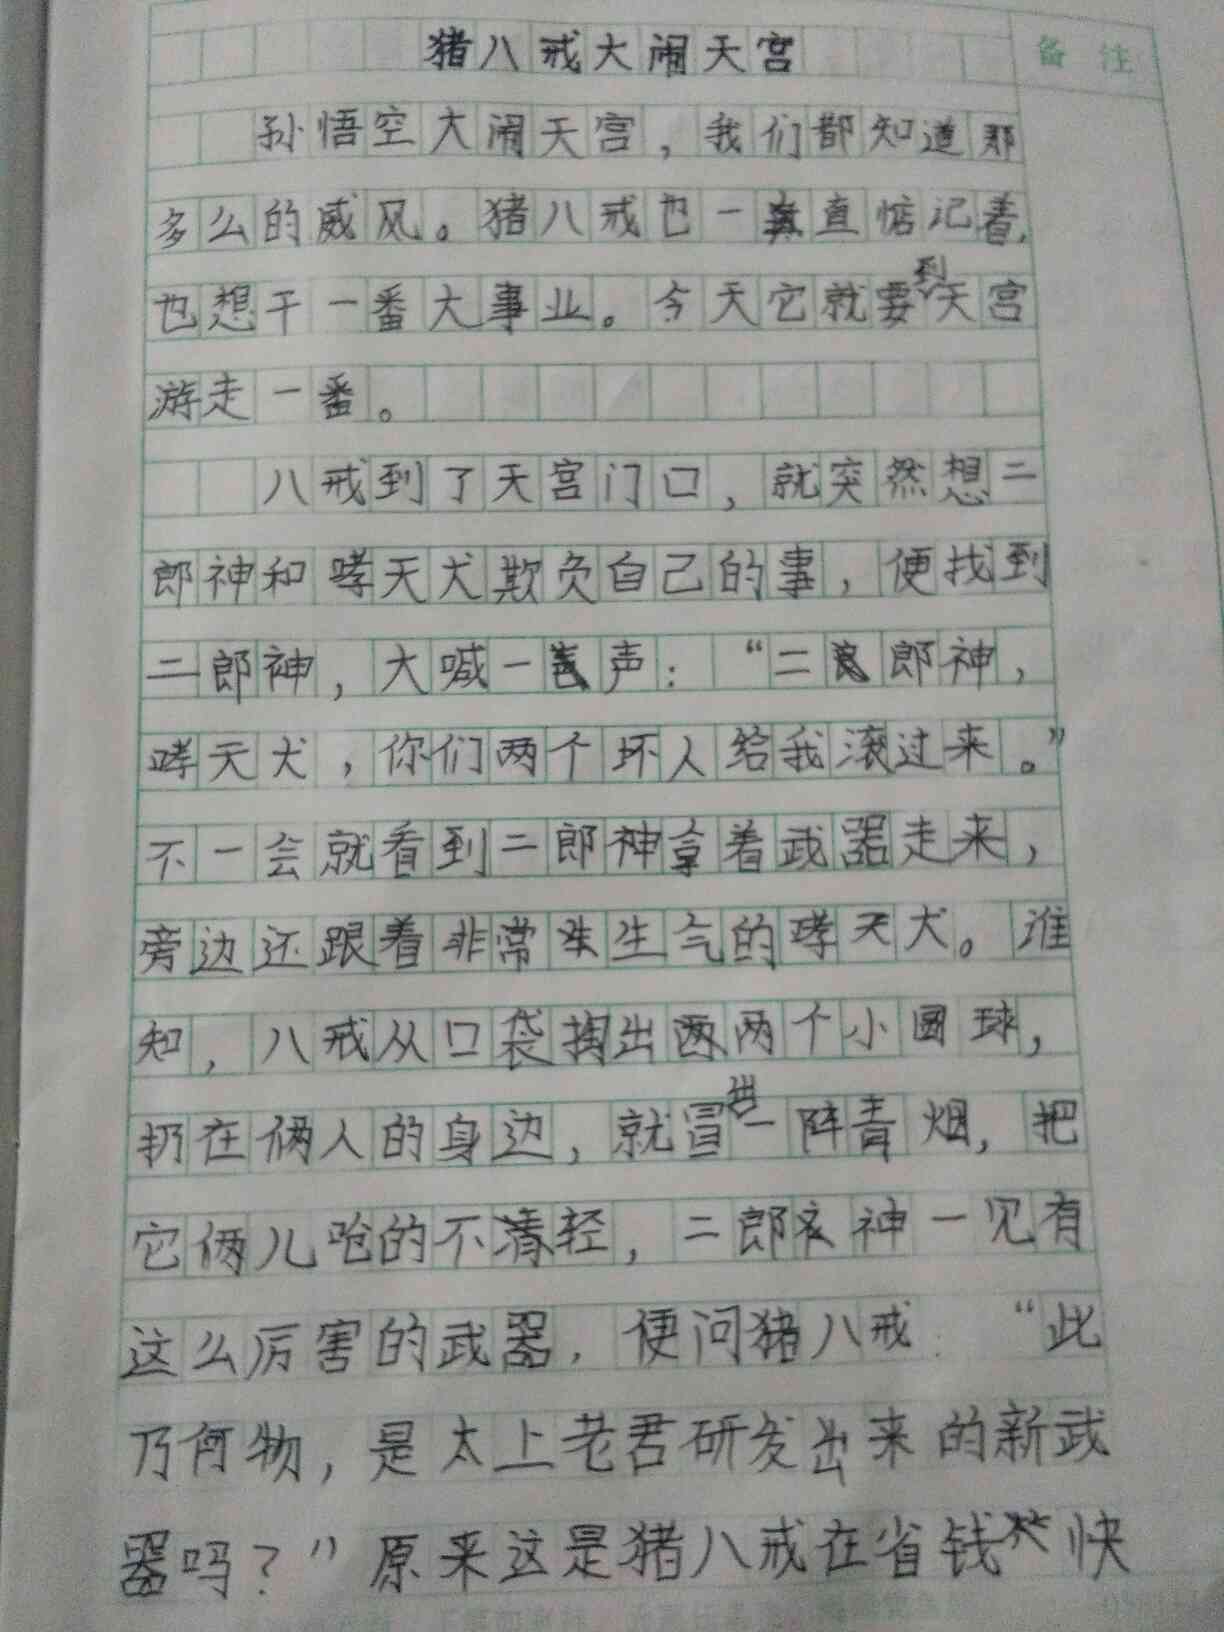 猪八戒大闹天宫
备注
孙悟空大闹天宫，我们都知道那
多么的威风。猪八戒也一直惦记着，
也想干一番大事业。今天它就要到天宫
游走一番。
八戒到了天宫门口，就突然想二
郎神和哮天犬欺负自己的事，便找到
二郎神，大喊一声：“二郎神，
哮天犬，你们两个坏人给我滚过来。”
不一会就看到二郎神拿着武器走来，
旁边还跟着非常生气的哮天犬。谁
知，八戒从口袋掏出两个小圆球，
扔在俩人的身边，就冒出一阵青烟，把
它俩儿呛的不清轻，二郎神一见有
这么厉害的武器，便问猪八戒：“此
乃何物，是太上老君研发出来的新武
器吗？”原来这是猪八戒在省钱快